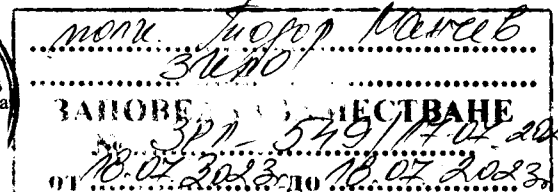 полк. Тодор Манчев
ЗАПОВЕ ЕСТВАНЕ
№ ЗРД-549/17.07.202
от 18.07.2023 до 18.07.2023